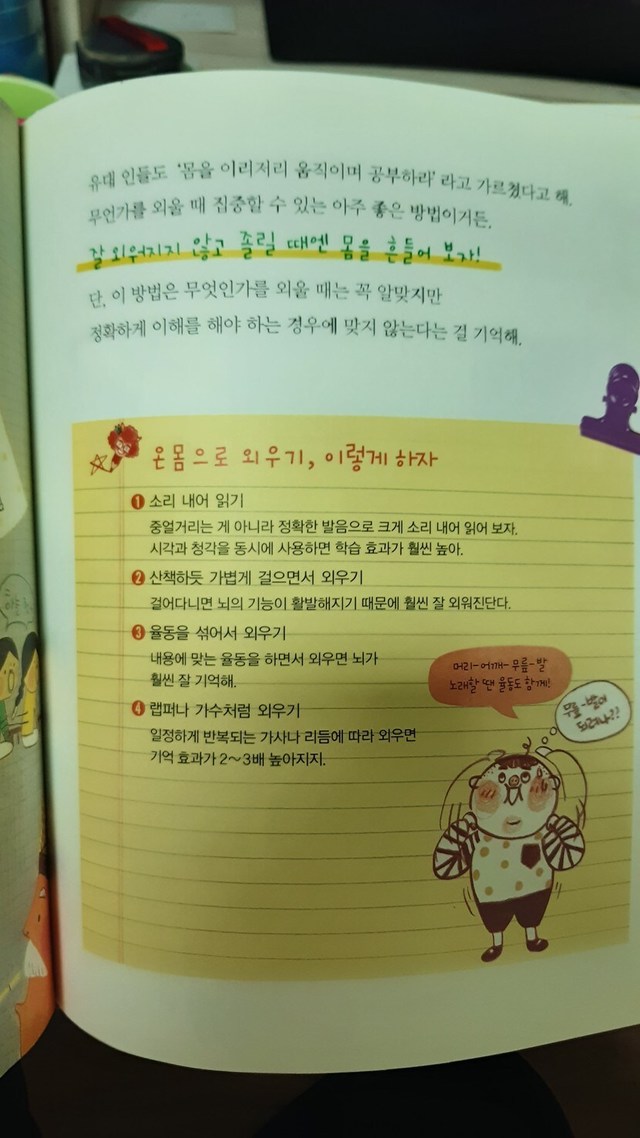 유대 인들도 '몸을 이리저리 움직이며 공부하라' 라고 가르쳤다고 해.
무언가를 외울 때 집중할 수 있는 아주 좋은 방법이거든.
잘 외워지지 않고 졸릴 때엔 몸을 흔들어 보자!
단, 이 방법은 무엇인가를 외울 때는 꼭 알맞지만
정확하게 이해를 해야 하는 경우에 맞지 않는다는 걸 기억해.
온몸으로 외우기, 이렇게 하자
1 소리 내어 읽기
중얼거리는 게 아니라 정확한 발음으로 크게 소리 내어 읽어 보자.
시각과 청각을 동시에 사용하면 학습 효과가 훨씬 높아.
2 산책하듯 가볍게 걸으면서 외우기
걸어다니면 뇌의 기능이 활발해지기 때문에 훨씬 잘 외워진단다.
3 율동을 섞어서 외우기
내용에 맞는 율동을 하면서 외우면 뇌가
훨씬 잘 기억해.
4 랩퍼나 가수처럼 외우기
일정하게 반복되는 가사나 리듬에 따라 외우면
기억 효과가 2~3배 높아지지.
머리-어깨-무릎-발
노래할 땐 율동도 함께!
무릎-발이